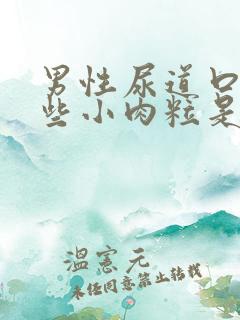 男性尿道口
些小肉粒是
温宪元
未经同意禁止转载